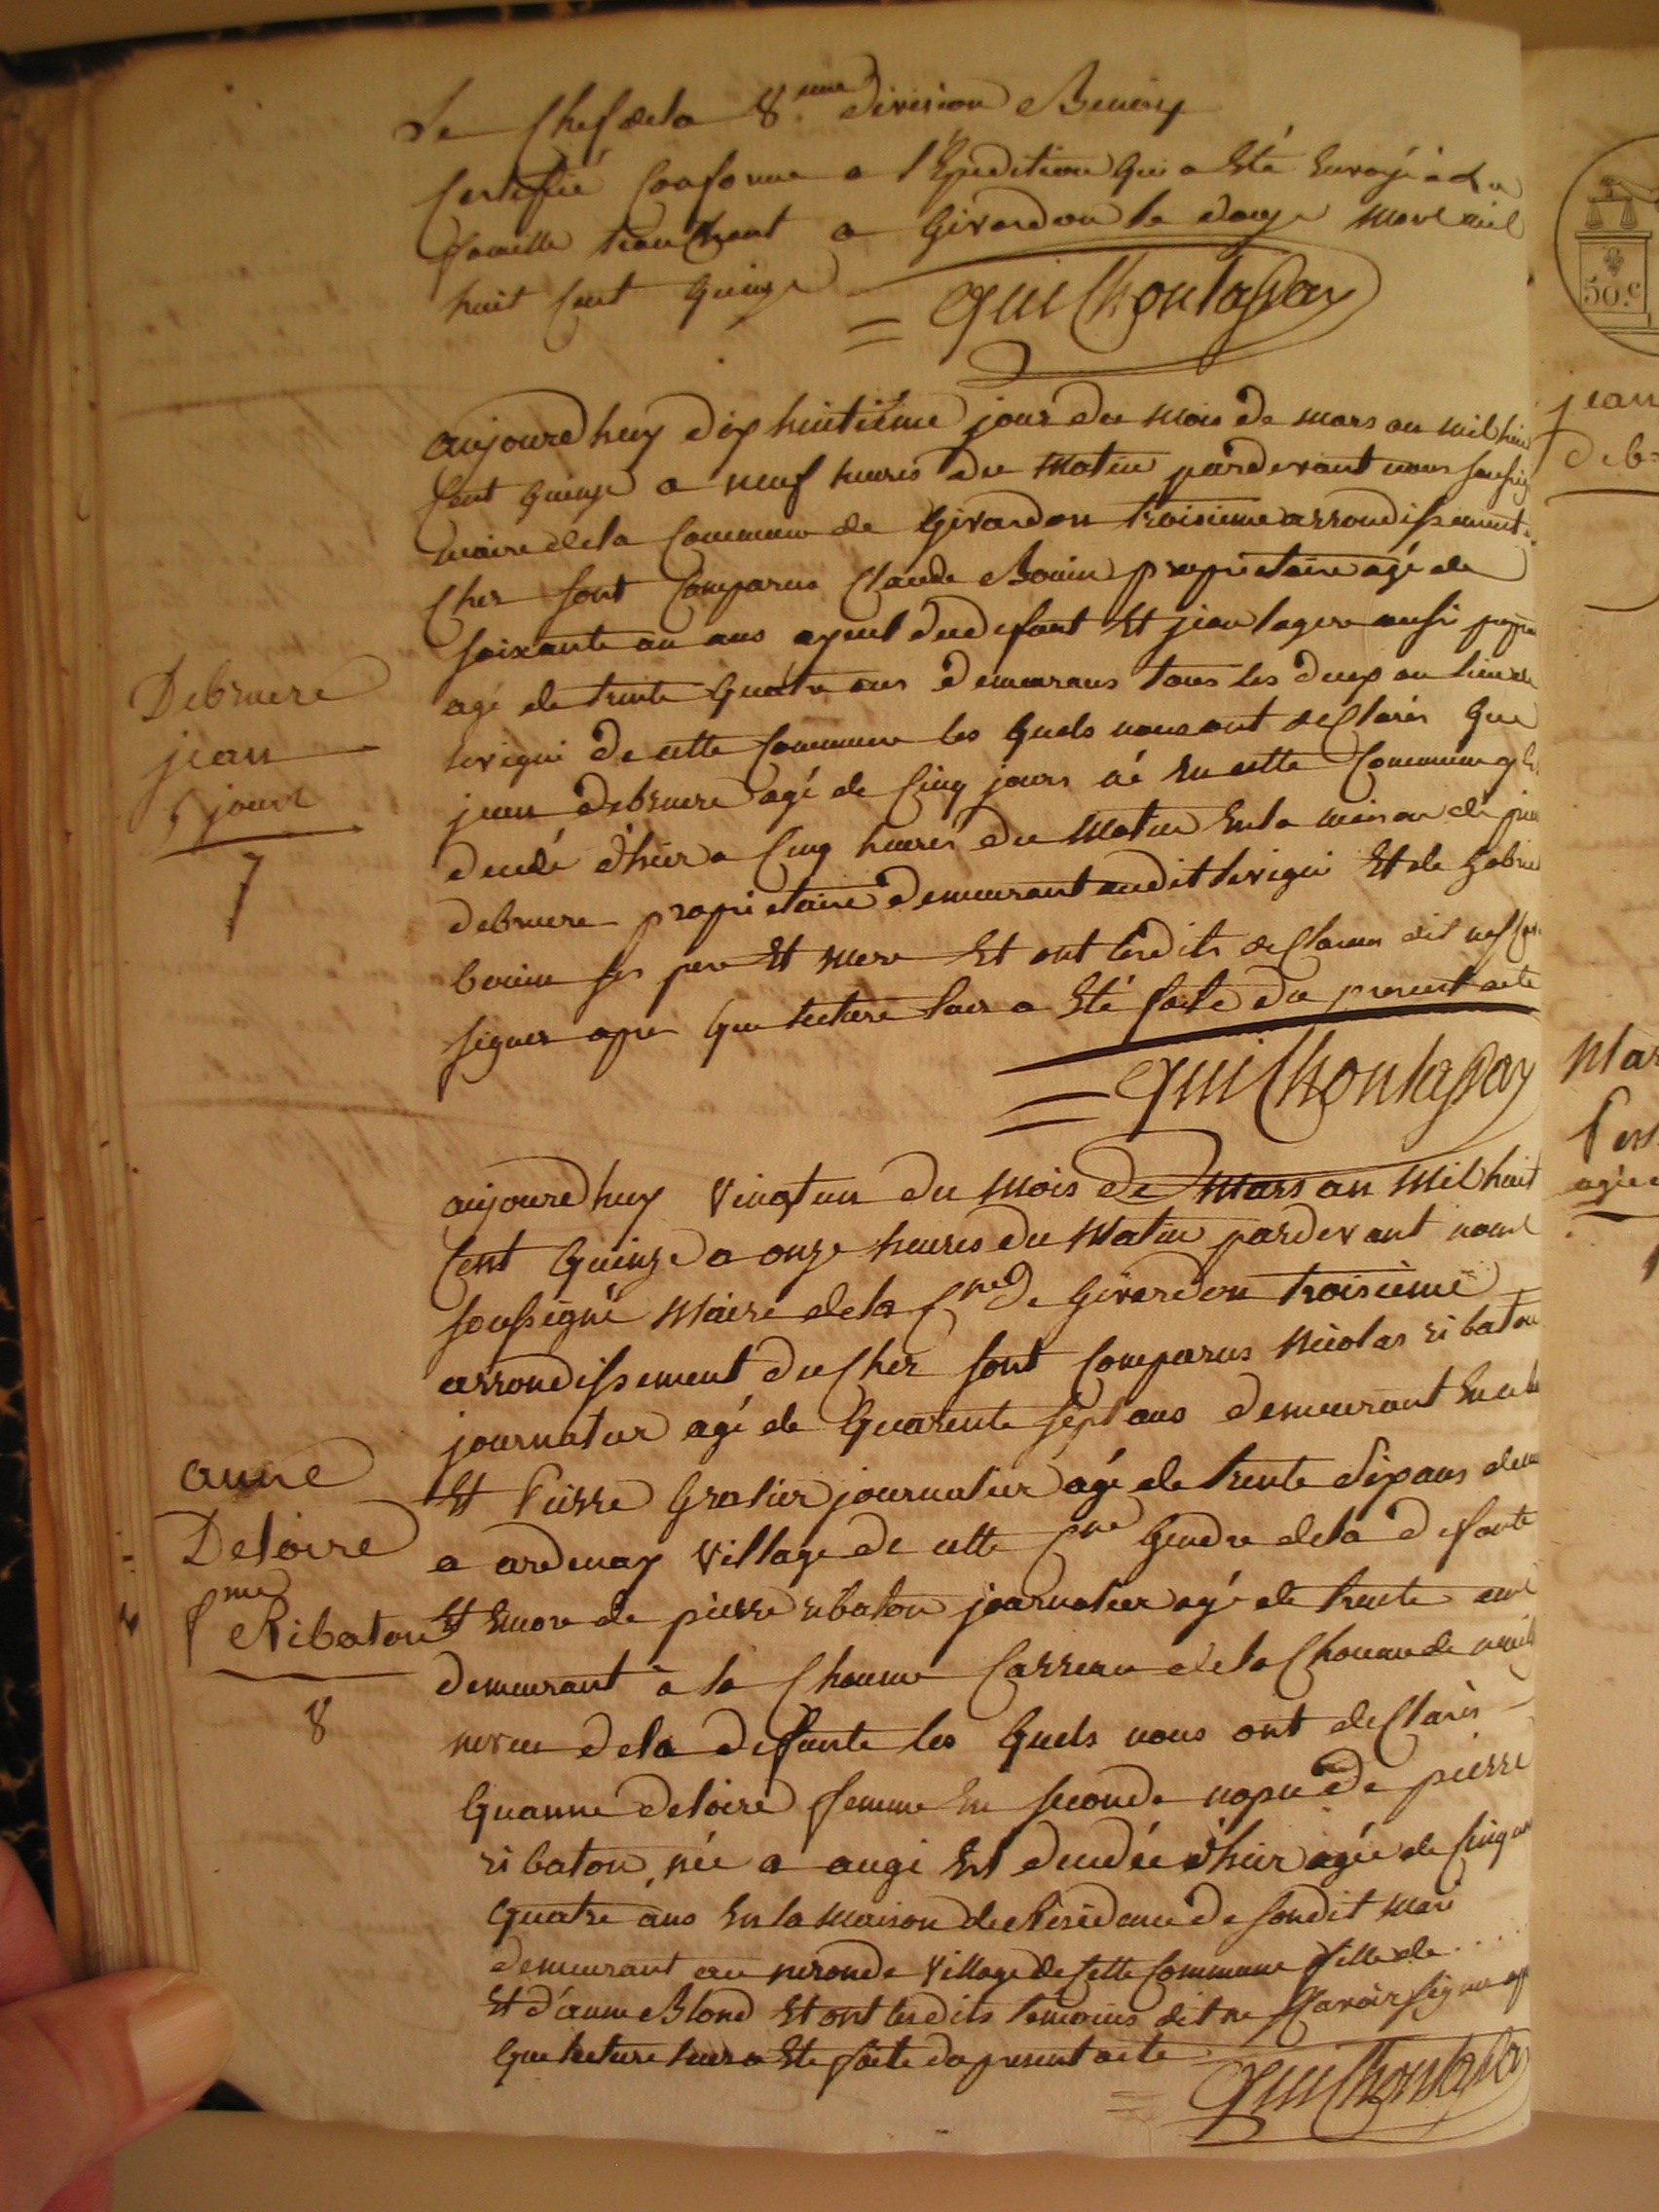 Le Chef de la 8.eme division
Certifié Conforme a l'Expedition qui a Eté Envoyé a la
famille a Givardon le mars mil
huit Cent quinze
= Guilhonlaspay
aujourdhuy dix huitième jour du mois de mars an mil hui
Cent quinze a neuf heures du Matin pardevant nous soussig
maire dela Commune de Givardon troisieme arrondissement
Cher sont Comparus Claude Bouin propriétaire agé de
soixante un ans ayeul dudefunt Et jean aussi
agé de trente quatre ans demeurans tous les deux au lieu de
de cette Commune les quels nous ont declarés que
jean debruere agé de Cinq jours né En cette Commune y
decedé d'hier a Cinq heures du Matin En la maison de
debruere propriétaire demeurant audit Et de Gabrie
bouin ses pere Et mere Et ont lesdits declarans dit ne
signer apres que lecture leur a Eté faite du present acte
= Guilhonlaspay
Debruere
jean
5 jours
7
aujourdhuy vingt un du Mois de Mars an Mil huit
Cent quinze a onze heures du Matin pardevant nous
soussigné Maire dela Cne de Givardon troisieme
arrondissement du Cher sont Comparus Nicolas ribaton
journalier agé de quarente sept ans demeurant
Et Pierre Gratier journalier agé de trente dix ans dem
a ardenay Village de cette Cne Gendre dela defunte
Et Encore de pierre ribaton journalier agé de trente ans
demeurant à la Chaume dela
neveu dela defunte les quels nous ont declarés
quanne Deloire femme En seconde nopce de pierre
ribaton, née a augi Est decedée d'hier agée de Cinqu
quatre ans En la Maison de Résidence de sondit Mari
demeurant au Village de Cette Commune fille de . . . .
Et d'anne Blond Et ont lesdits temoins dit ne Scavoir signer
que lecture leur a Ete faite du present acte
Guilhonlaspay
anne
Deloire
fme
Ribaton
8
50.c
jean